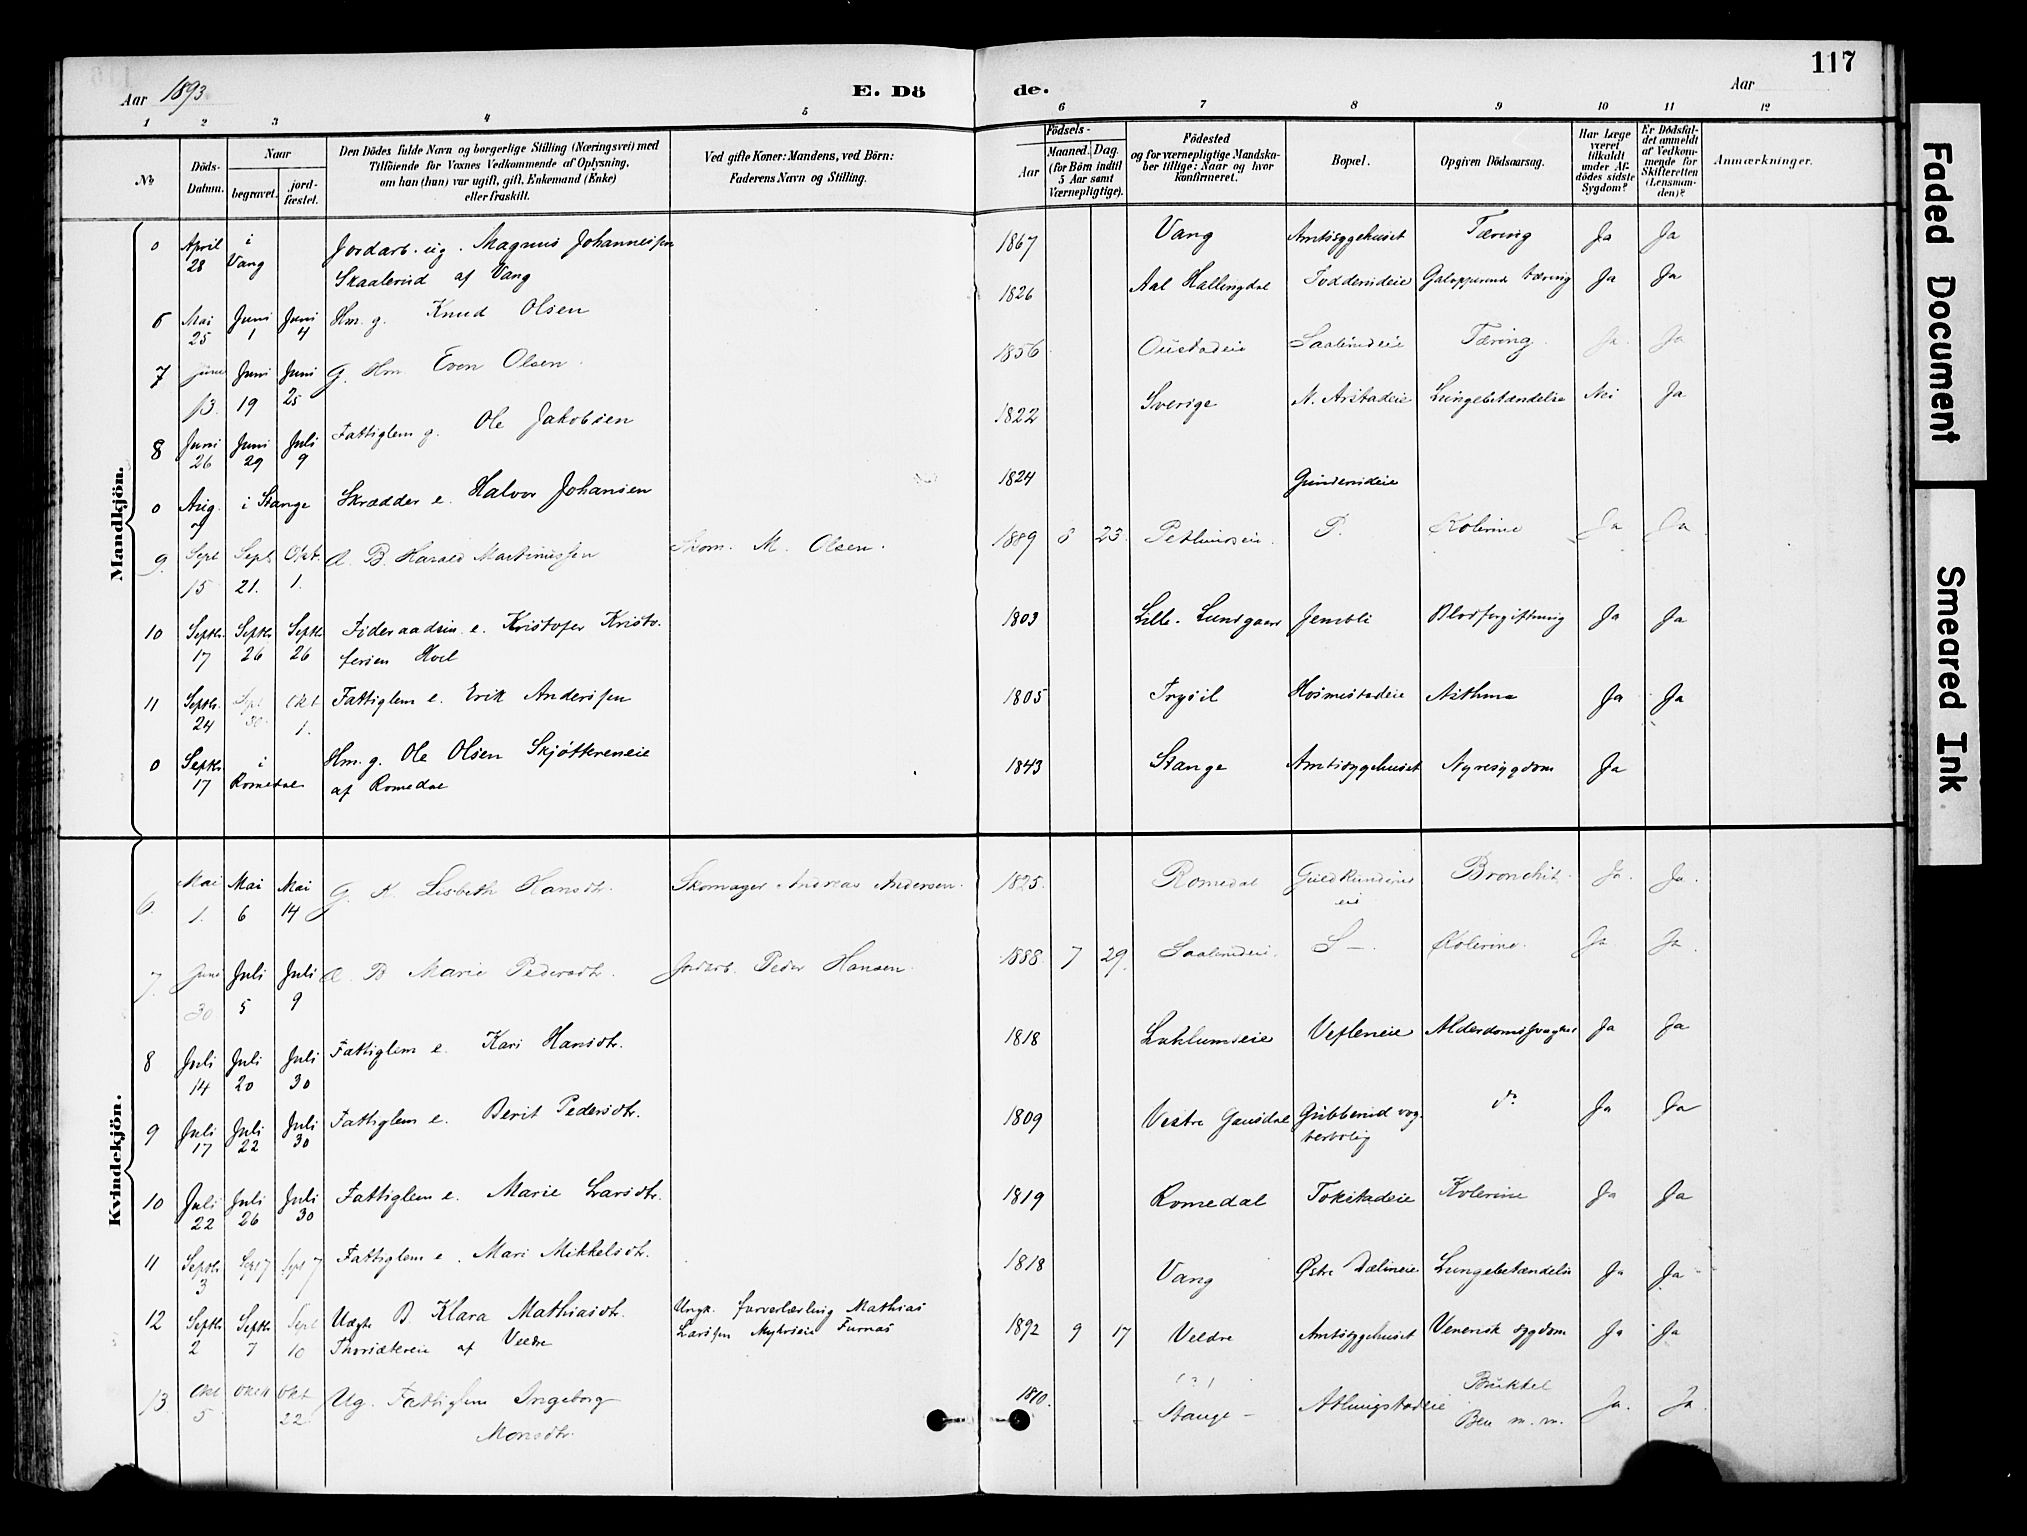 117
Aar 1893
E. Dö de.
Aar
1 2 3 4 5 6 7 8 9 10 11 12
No
Döds-Datum.
Naar
begravet.
jord-fæstet.
Den Dödes fulde Navn og borgerlige Stilling (Næringsvei) med
Tilföiende for Voxnes Vedkommende af Oplysning,
om han (hun) var ugift, gift, Enkemand (Enke)
eller fraskilt.
Ved gifte Koner: Mandens, ved Börn:
Faderens Navn og Stilling.
Födsels-
Aar
Maaned. Dag.
(for Börn indtil
5 Aar samt
Værnepligtige).
Födested
og for værnepligtige Mandska-
ber tillige: Naar og hvor
konfirmeret.
Bopæl.
Opgiven Dödsaarsag.
Har Læge
været
tilkaldt
under Af-
dödes sidste
Sygdom?
Er Dödsfal-
det anmeldt
af Vedkom-
mende for
Skifteretten
(Lensman-
den)?
Anmærkninger.
Mandkjön.
0 April 28 i Vang Jordarb. ug. Magnus Johannessen Skaalerud af Vang 1867 Vang Amtssygehuset Tæring Ja Ja
6 Mai 25 Juni 1 Juni 4 Hm. g. Knud Olsen 1826 Aal Hallingdal Galopperende tæring Ja Ja
7 Juni 13. Juni 19 Juni 25 G. Hm. Even Olsen. 1856 Tæring. Ja. Ja
8 Juni 26 Juni 29 Juli 9 Fattiglem g. Ole Jakobsen 1822 Sverige N. Arstadeie Lungebetændelse Nei Ja
0 Aug. 7 i Stange Skrædder e. Halvor Johansen 1824
9. Sept 15 Sept 21. Okt. 1. Æ. B. Harald Martinussen Skom. M. Olsen. 1889 23. P. Kolerine Ja Ja
10 Septbr. 17 Septbr 26 Septbr 26 Føderaadsm. e. Kristofer Kristofersen Hoel 1803 Lille-Lundgaard Jemli Blodforgiftning Ja Ja
11 Septbr. 24 Sept 30. Okt 1. Fattiglem e. Erik Anderssen 1805 Trysil Hosmestadeie Asthma Ja Ja
0 Septbr 17 i Romedal Hm. g. Ole Olsen Skjøttereneie af Romedal 1843 Stange Amtssygehuset Nyresygdom Ja
Kvindekjön.
6. Mai 1. Mai 6 Mai 14 G. K. Lisbeth Hansdtr. Skomager Andreas Andersen. 1825. Romedal Bronchit. Ja. Ja.
7. Juni 30 Juli 5 Juli 9 Æ. B. Marie Pedersdtr. Jordarb. Peder Hansen. 1888. 7 29. S—. Kolerine. Ja Ja.
8 Juli 14 Juli 20 Juli 30 Fattiglem e. Kari Hansdtr. 1818 Vefleneie Ja Ja
9 Juli 17 Juli 22 Juli 30 Fattiglem e. Berit Pedersdtr. 1809 Vestre Gausdal Gubberud vogterbolig do Ja Ja
10 Juli 22 Juli 26 Juli 30 Fattiglem e. Marie Larsdtr. 1819 Romedal Tokstadeie Kolerine Ja Ja
11 Septbr 3 Sept 7 Sept 7 Fattiglem e. Mari Mikkelsdtr. 1818 Vang Østre Dælineie Lungebetændelse Ja Ja
12 Septbr 2 Septbr 7 Sept 10 Uægte B. Klara Mathiasdtr. af Veldre Ungk. farverlærling Mathias Larssen Furnes 1892 9 17 Veldre Amtssygehuset Venerisk sygdom Ja Ja
13 Okt 5 Okt 11 Okt 22. Ug. Fattiglem Ingeborg Monsdtr. 1810. (?) Stange – Atlungstadeie Brukket Ben m. m. Ja. Ja.
Faded Document
Smeared Ink